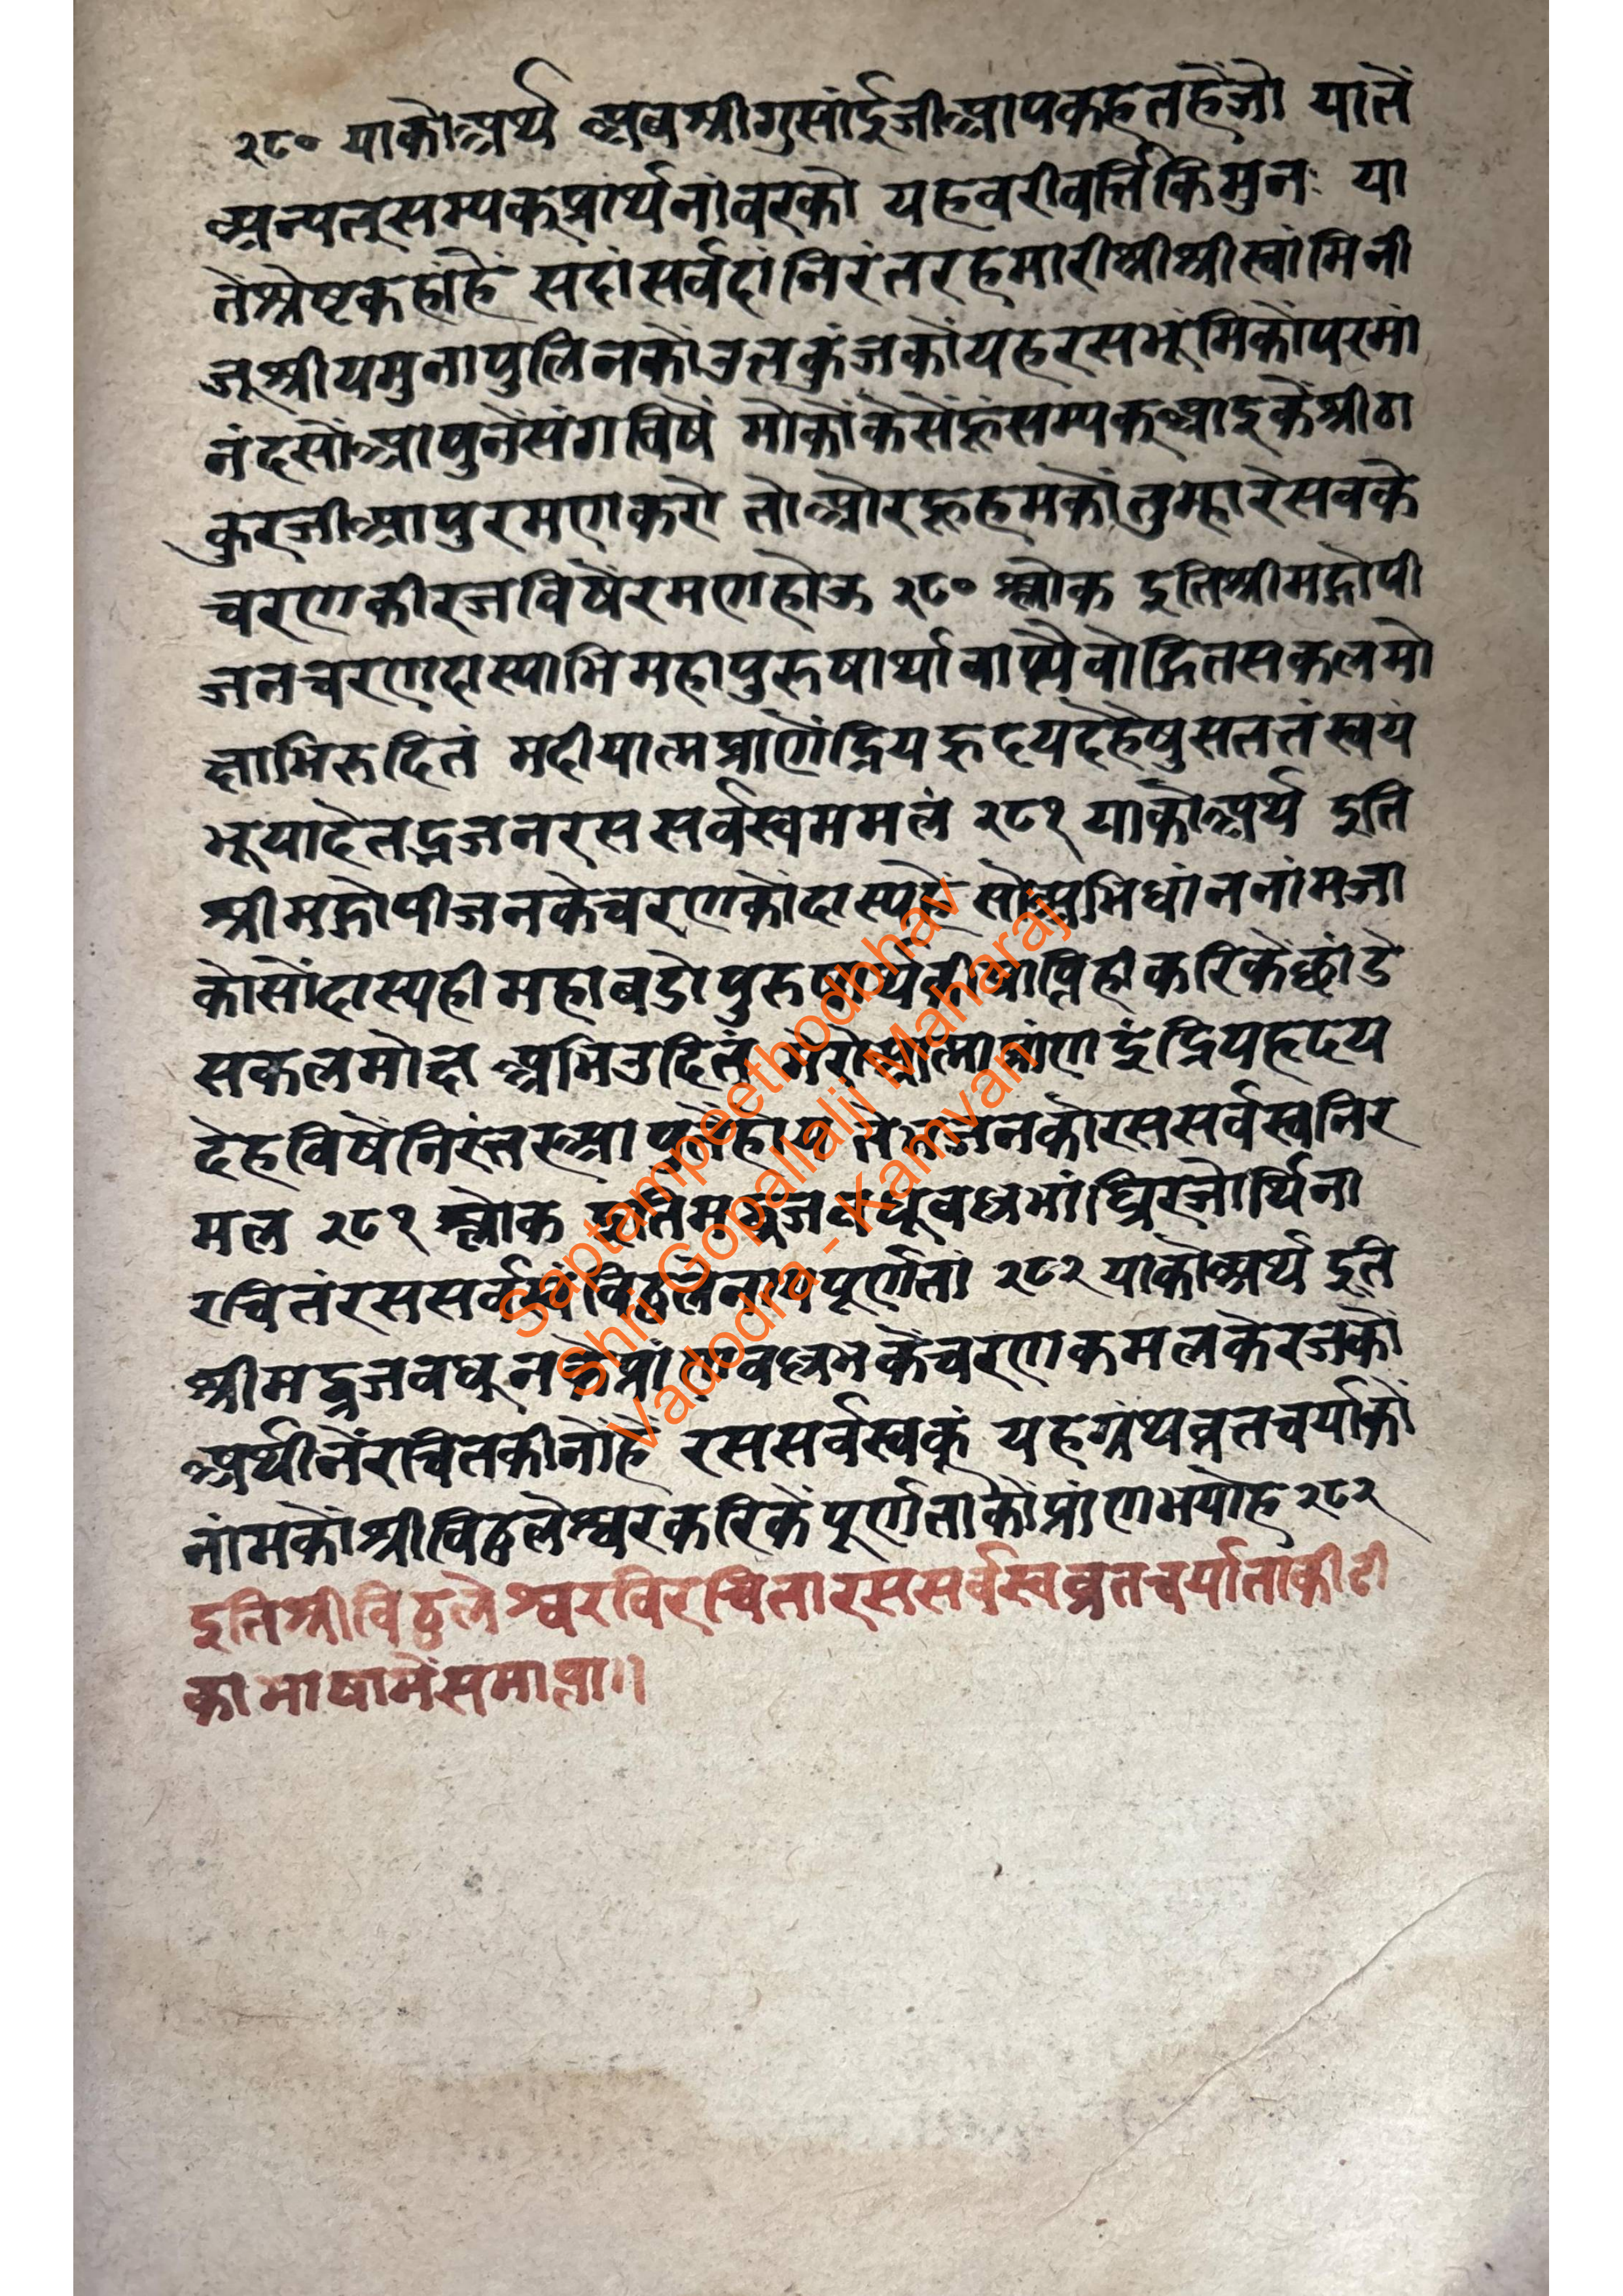 २८० याकोअर्थ अबश्रीगुसांईजीआपकहतहैंजो यातें
अन्यत्सम्यक्प्रार्थनांवरको यहवरीवर्त्तिकिमुनः या
तेंश्रेष्टकहांहैं सदांसर्वदांनिरंतरहमारीश्रीश्रीस्वांमिनी
जूश्रीयमुनापुलिनकौउतकुंजकौयहरसभूंमिकोपरमां
नंदसोंआपुनेंसंगविषें मोकोंकेसेंहूंसम्यक्आइकेंश्रीठा
कुरजीआपुरमणकरो तोओरहूहमकोंतुम्हारेसबके
चरणकीरजविषेंरमणहोऊ २८० श्लोक इतिश्रीमद्गोपी
जनचरणदास्याभिमहापुरुषार्थावाप्त्यैवोद्गितसकलमो
क्षाभिरुदितं मदीयात्मप्राणेंद्रियहृदयदेहेषुसततंस्वयं
भूयादेतद्व्रजनरससर्वस्वममलं २८१ याकोअर्थ इति
श्रीमद्गोपीजनकेचरणकोदास्यहै सोअभिधांननांमजा
कोसोंदास्यहीमहाबडोपुरुषार्थकीप्राप्तिहीकरिकेंछांडे
सकलमोक्ष अभिउदितं मेरोआत्माप्रांण इंद्रियहृदय
देहविषेंनिरंतरआपुनेंहोय जनकोरससर्वस्वनिर
मल २८१ श्लोक इतिमद्व्रजवधूवल्लभांघ्रिरजोर्थिना
रचितंरससर्वस्वंविठ्ठलेनाप्तपूर्णतां २८२ याकोअर्थ इति
श्रीमद्व्रजवधूनकेप्रांणवल्लभकेचरणकमलकेरजको
अर्थीनेंरचितकीनोंहैं रससर्वस्वकूं यहग्रंथव्रतचर्याकों
नांमकोंश्रीविठ्ठलेश्वरकरिकेंपूर्णताकोंप्रांणभयोहै २८२
इतिश्रीविठ्ठलेश्वरविरचितारससर्वस्वव्रतचर्याताकीटी
काभाषामेंसमाप्ता॥
Saptampeethodbhav
Shri Gopallalji Maharaj
Vadodra - Kamvan